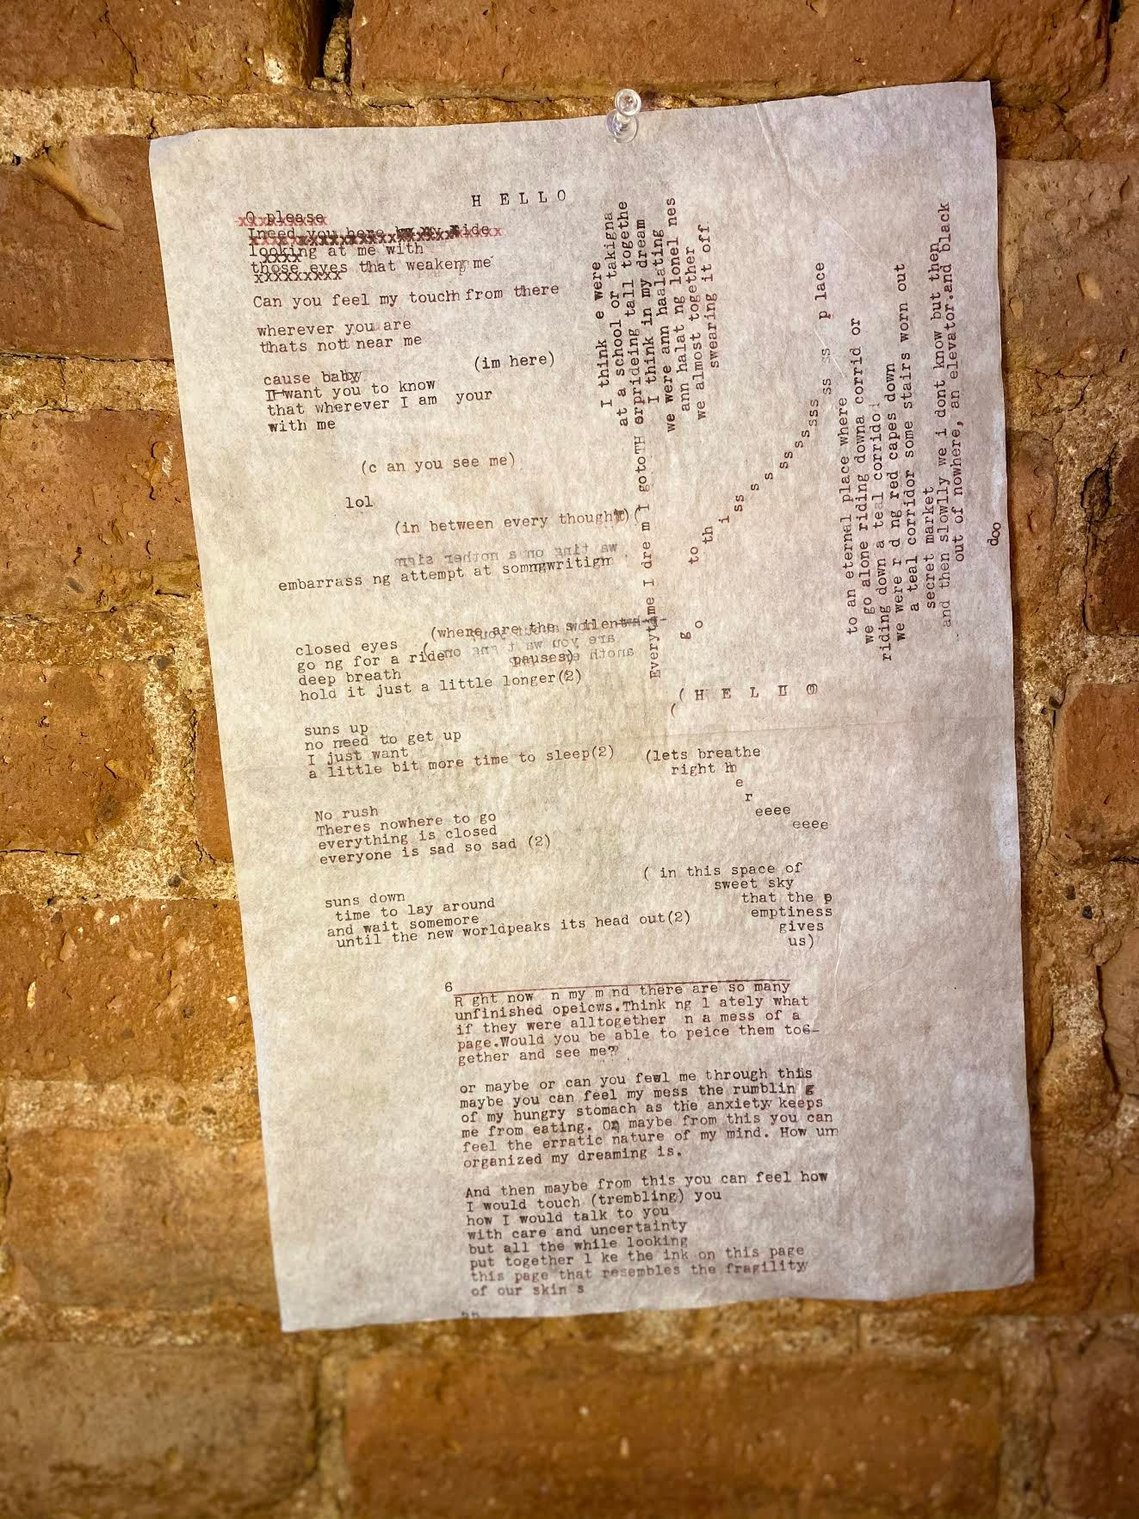 H E L L O
O please
Ineed you here by my side
looking at me with
those eyes that weaken me
Can you feel my touch from there
wherever you are
thats not near me
(im here)
cause baby
I want you to know
that wherever I am your
with me
(c an you see me)
lol
(in between every thought)(
embarrass ng attempt at somngwritign
(where are the s ilent
closed eyes
go ng for a ride
pauses)
deep breath
hold it just a little longer(2)
suns up
no need to get up
I just want
a little bit more time to sleep(2)
No rush
Theres nowhere to go
everything is closed
everyone is sad so sad (2)
suns down
time to lay around
and wait somemore
until the new worldpeaks its head out(2)
I think e were
at a school or takigna
orprideing tall togethe
I think in my dream
we were ann haalating
ann halat ng lonel nes
we almost together
swearing it off
Everytime I dre m I gotoTH
g o to th i ss s s s s s s s sss ss ss p lace
to an eternal place where
we go alone riding downa corrid or
riding down a teal corrido!
we were r d ng red capes down
a teal corridor some stairs worn out
secret market
and then slowlly we i dont know but then
out of nowhere, an elevator.and black
doo
( H E L
(
(lets breathe
right h
e
r
eeee
eeee
( in this space of
sweet sky
that the p
emptiness
gives
us)
6
R ght now n my m nd there are so many
unfinished opeicws.Think ng l ately what
if they were alltogether n a mess of a
page.Would you be able to peice them to6-
gether and see me?
or maybe or can you fewl me through this
maybe you can feel my mess the rumblin g
of my hungry stomach as the anxiety keeps
me from eating. Or maybe from this you can
feel the erratic nature of my mind. How un
organized my dreaming is.
And then maybe from this you can feel how
I would touch (trembling) you
how I would talk to you
with care and uncertainty
but all the while looking
put together l ke the ink on this page
this page that resembles the fragility
of our skin s